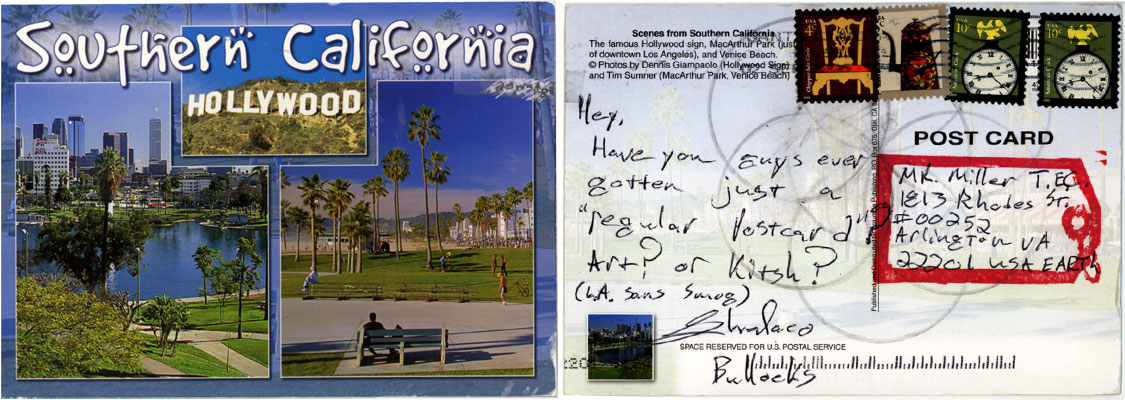 Southern California
HOLLYWOOD
Scenes from Southern California
The famous Hollywood sign, MacArthur Park (just
of downtown Los Angeles), and Venice Beach.
© Photos by Dennis Giampaolo (Hollywood Sign)
and Tim Sumner (MacArthur Park, Venice Beach)
USA
4c
Chippendale Chair
USA
10c
American Clock
USA
10c
American Clock
POST CARD
Hey,
Have you guys ever
gotten just a
"regular Postcard"?
Art? or Kitsh?
(L.A. sans smog)
Bullocks
MR. Miller T.EC.
1813 Rhodes St.
#00252
Arlington VA
22201 USA EARTH
SPACE RESERVED FOR U.S. POSTAL SERVICE